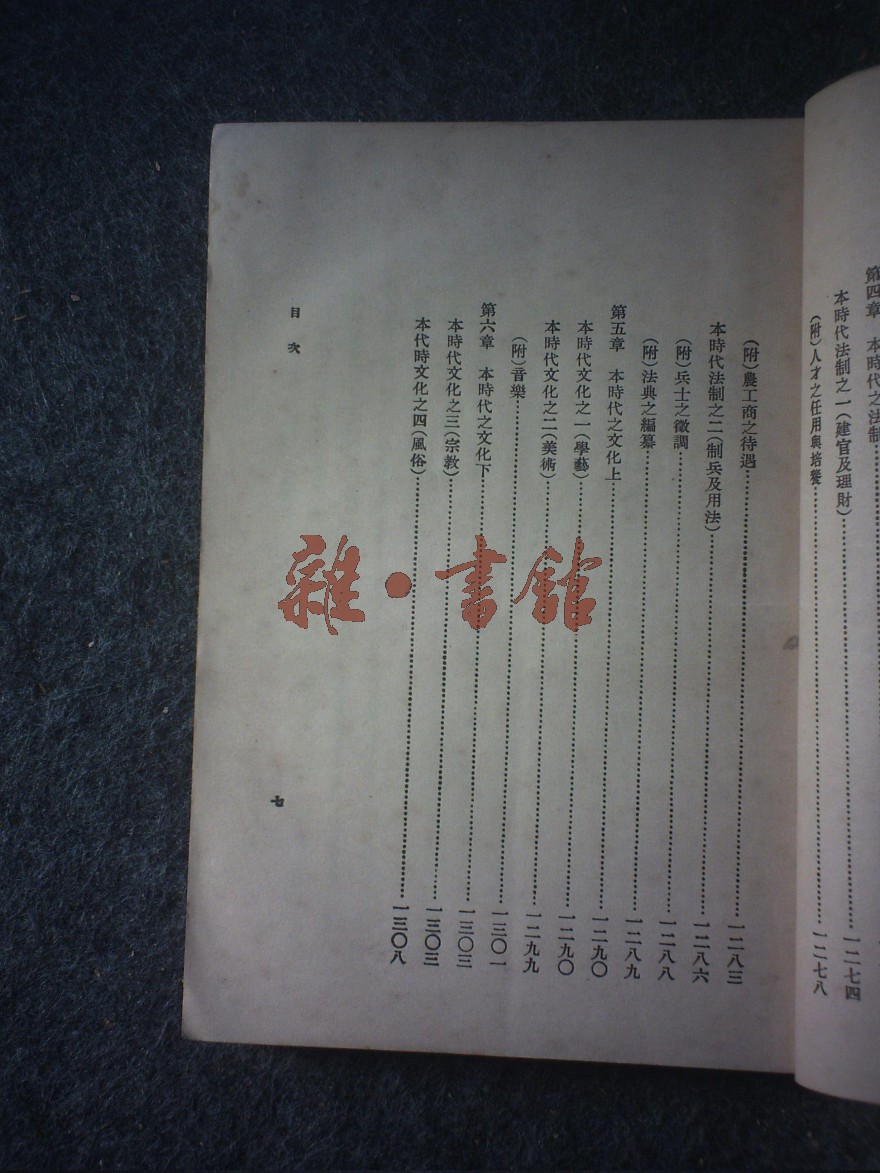 第四章　本時代之法制
本時代法制之一(建官及理財)……一二七四
(附)人才之任用與培養……一二七八
(附)農工商之待遇……一二八三
本時代法制之二(制兵及用法)……一二八六
(附)兵士之徵調……一二八八
(附)法典之編纂……一二八九
第五章　本時代之文化上……一二九〇
本時代文化之一(學藝)……一二九〇
本時代文化之二(美術)……一二九九
(附)音樂……一三〇一
第六章　本時代之文化下……一三〇三
本時代文化之三(宗教)……一三〇三
本代時文化之四(風俗)……一三〇八
目次
七
雜·書館